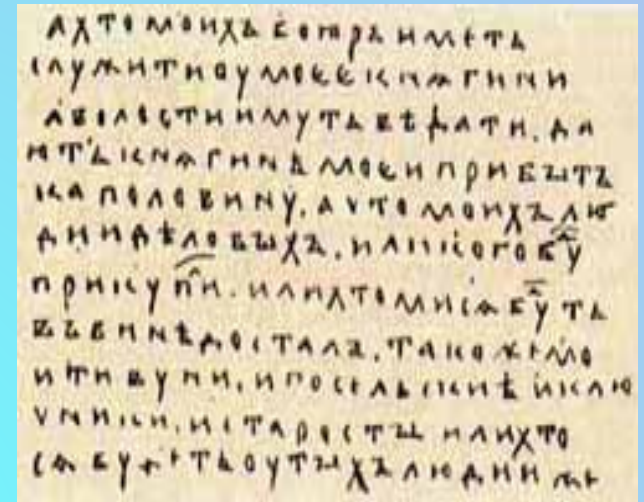 а хто моихъ бояръ иметь
служити оу моеє кнѧгини
а волости имуть вѣдати. да
ють кнѧгинѣ моєи прибытъ
ка половину. а что моихъ лю
дии дѣловыхъ. или кого бу
прикупи. или хто ми сѧ бу ть
въ винѣ досталъ. тако же мо
и тивуни. и посельскиѣ и клю
чники. и старосты или хто
сѧ будеть оу тыхъ людии